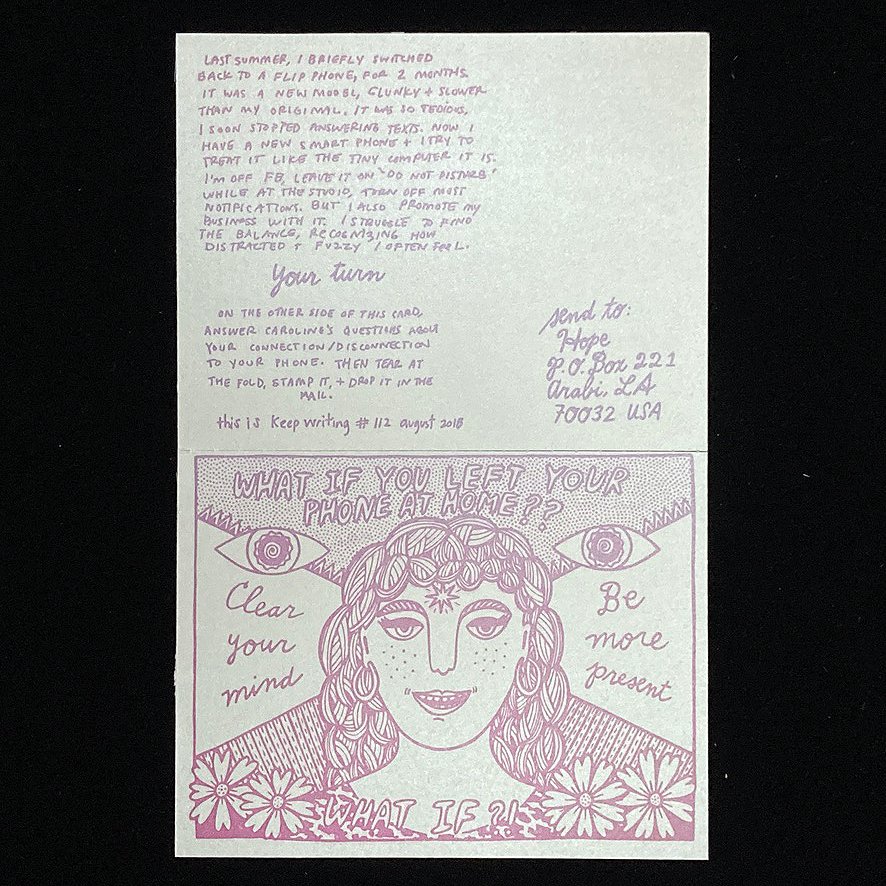 LAST SUMMER, I BRIEFLY SWITCHED
BACK TO A FLIP PHONE, FOR 2 MONTHS.
IT WAS A NEW MODEL, CLUNKY + SLOWER
THAN MY ORIGINAL. IT WAS SO TEDIOUS,
I SOON STOPPED ANSWERING TEXTS. NOW I
HAVE A NEW SMART PHONE + I TRY TO
TREAT IT LIKE THE TINY COMPUTER IT IS.
I'M OFF FB, LEAVE IT ON "DO NOT DISTURB"
WHILE AT THE STUDIO, TURN OFF MOST
NOTIFICATIONS. BUT I ALSO PROMOTE MY
BUSINESS WITH IT. I STRUGGLE TO FIND
THE BALANCE, RECOGNIZING HOW
DISTRACTED + FUZZY I OFTEN FEEL.
Your turn
ON THE OTHER SIDE OF THIS CARD,
ANSWER CAROLINE'S QUESTIONS ABOUT
YOUR CONNECTION/DISCONNECTION
TO YOUR PHONE. THEN TEAR AT
THE FOLD, STAMP IT, + DROP IT IN THE
MAIL.
this is Keep Writing # 112 august 2018
Send to:
Hope
P.O. Box 221
Arabi, LA
70032 USA
WHAT IF YOU LEFT YOUR
PHONE AT HOME??
Clear
your
mind
Be
more
present
WHAT IF ?!